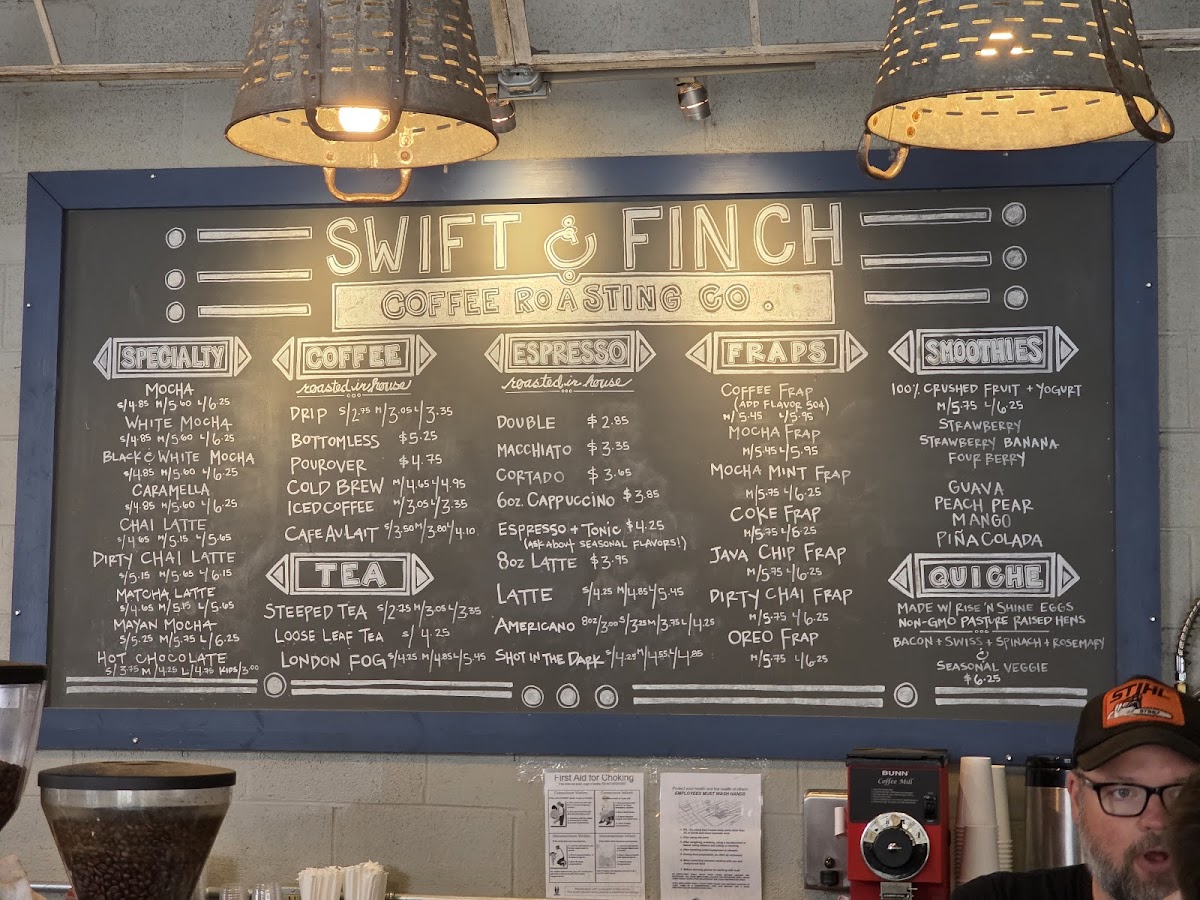 SWIFT & FINCH
COFFEE ROASTING CO.
SPECIALTY
MOCHA
S/4.85 M/5.60 L/6.25
WHITE MOCHA
S/4.85 M/5.60 L/6.25
BLACK & WHITE MOCHA
S/4.85 M/5.60 L/6.25
CARAMELLA
S/4.85 M/5.60 L/6.25
CHAI LATTE
S/4.65 M/5.15 L/5.65
DIRTY CHAI LATTE
S/5.15 M/5.65 L/6.15
MATCHA LATTE
S/4.65 M/5.15 L/5.65
MAYAN MOCHA
S/5.25 M/5.75 L/6.25
HOT CHOCOLATE
S/3.75 M/4.25 L/4.75 KIDS/3.00
COFFEE
roasted in house
DRIP S/2.75 M/3.05 L/3.35
BOTTOMLESS $5.25
POUROVER $4.75
COLD BREW M/4.65 L/4.95
ICED COFFEE M/3.05 L/3.35
CAFE AU LAIT S/3.50 M/3.80 L/4.10
TEA
STEEPED TEA S/2.25 M/3.05 L/3.35
LOOSE LEAF TEA S/4.25
LONDON FOG S/4.25 M/4.85 L/5.45
ESPRESSO
roasted in house
DOUBLE $2.85
MACCHIATO $3.35
CORTADO $3.65
6oz. CAPPUCCINO $3.85
ESPRESSO + TONIC $4.25
(ASK ABOUT SEASONAL FLAVORS!)
8oz LATTE $3.95
LATTE S/4.25 M/4.85 L/5.45
AMERICANO 8oz/3.00 S/3.25 M/3.75 L/4.25
SHOT IN THE DARK S/4.25 M/4.55 L/4.85
FRAPS
COFFEE FRAP
(ADD FLAVOR 50¢)
M/5.45 L/5.95
MOCHA FRAP
M/5.45 L/5.95
MOCHA MINT FRAP
M/5.75 L/6.25
COKE FRAP
M/5.75 L/6.25
JAVA CHIP FRAP
M/5.75 L/6.25
DIRTY CHAI FRAP
M/5.75 L/6.25
OREO FRAP
M/5.75 L/6.25
SMOOTHIES
100% CRUSHED FRUIT + YOGURT
M/5.75 L/6.25
STRAWBERRY
STRAWBERRY BANANA
FOUR BERRY
GUAVA
PEACH PEAR
MANGO
PIÑA COLADA
QUICHE
MADE W/ RISE 'N SHINE EGGS
NON-GMO PASTURE RAISED HENS
BACON + SWISS + SPINACH + ROSEMARY
&
SEASONAL VEGGIE
$6.25
First Aid for Choking
Protect your health and the health of others
EMPLOYEES MUST WASH HANDS
BUNN
Coffee Mill
STIHL